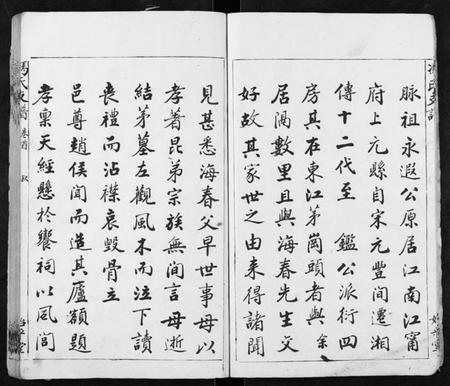 脉祖永遐公原居江南江甯
府上元縣自宋元豐間遷湘
傳十二代至 鑑公派衍四
房其在東江茅崗頭者與余
居隔數里且與海春先生文
好故其家世之由来得諸聞
見甚悉海春父早世事母以
孝著昆弟宗族無间言母逝
結茅墓左觀風木而泣下讀
喪禮而沾襟哀毀骨立
邑尊趙侯聞而造其廬額題
孝禀天經懸於饗祠以風閭
馮氏支譜 卷首 敘